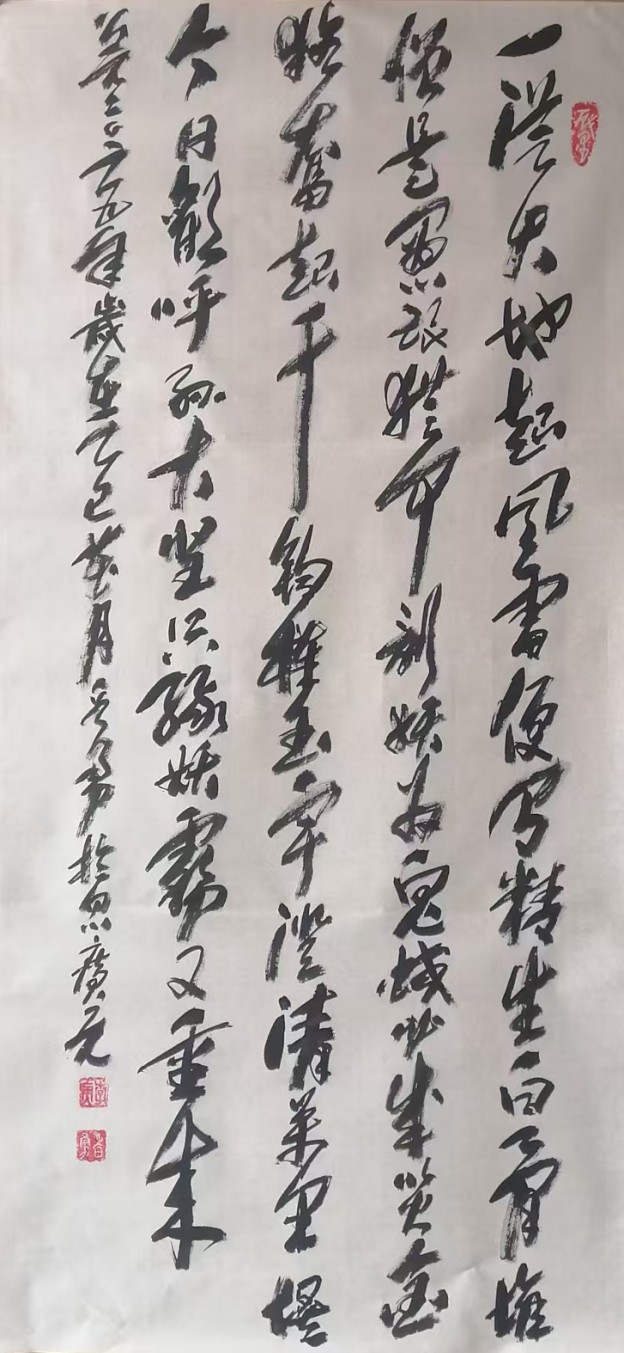 一從大地起風雷便有精生白骨堆
僧是愚氓猶可訓妖为鬼蜮必成災金
猴奮起千鈞棒玉宇澄清萬里埃
今日歡呼孫大聖只緣妖霧又重來
公元二〇二五年歲在乙巳月勇於四川廣元